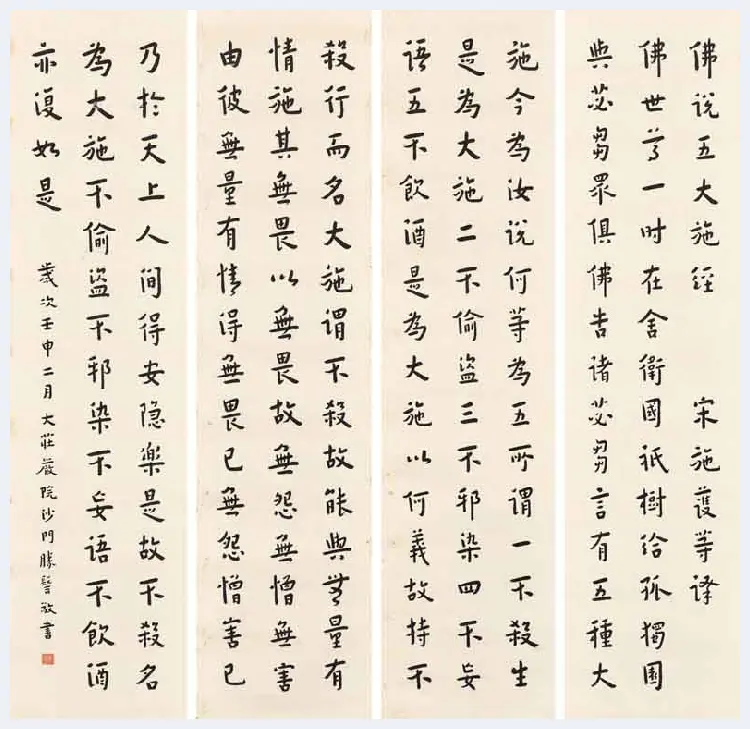 佛説五大施经　宋施護等译
佛世尊一时在舍衛國祇樹给孤獨園
與苾芻眾俱佛告諸苾芻言有五種大
施今為汝說何等為五所謂一不殺生
是為大施二不偷盜三不邪染四不妄
語五不飲酒是為大施以何義故持不
殺行而名大施謂不殺故能與无量有
情施其無畏以無畏故無怨無憎無害
由彼無量有情得無畏已無怨憎害已
乃於天上人间得安隐樂是故不殺名
為大施不偷盜不邪染不妄語不飲酒
亦復如是
歲次壬申二月大莊嚴院沙門勝髻敬書